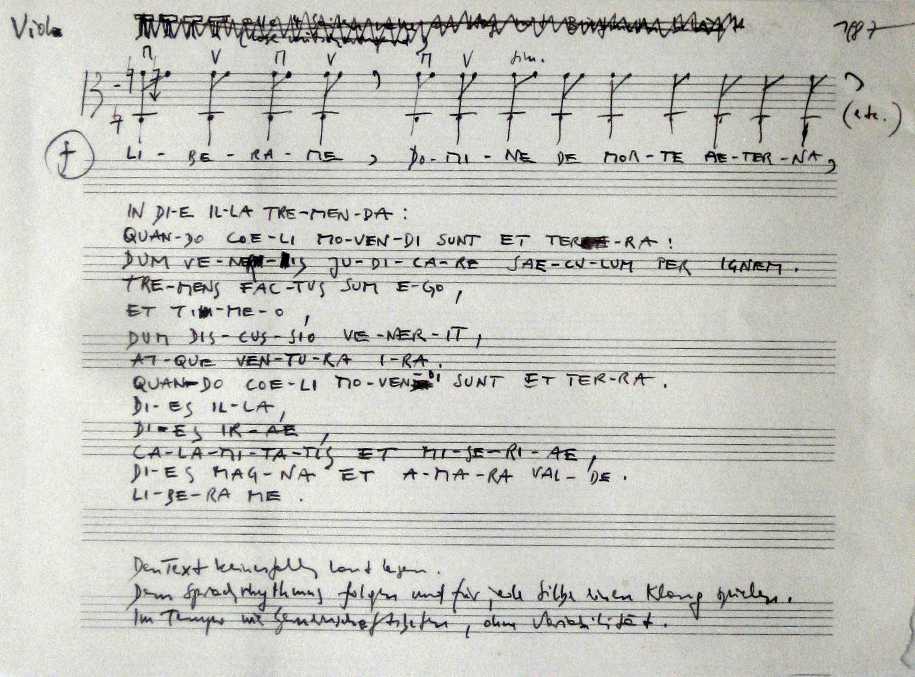 Viola
1987
sim.
(etc.)
f
LI-BE-RA-ME, DO-MI-NE DE MOR-TE AE-TER-NA,
IN DI-E IL-LA TRE-MEN-DA:
QUAN-DO COE-LI MO-VEN-DI SUNT ET TER-RA:
DUM VE-NE-RIS JU-DI-CA-RE SAE-CU-LUM PER IGNEM.
TRE-MENS FAC-TUS SUM E-GO,
ET TI-ME-O,
DUM DIS-CUS-SIO VE-NER-IT,
AT-QUE VEN-TU-RA I-RA.
QUAN-DO COE-LI MO-VEN-DI SUNT ET TER-RA.
DI-ES IL-LA,
DI-ES IR-AE,
CA-LA-MI-TA-TIS ET MI-SE-RI-AE,
DI-ES MAG-NA ET A-MA-RA VAL-DE.
LI-BE-RA ME.
Den Text keinesfalls laut lesen.
Dem Sprachrhythmus folgen und für jede Silbe einen Klang spielen.
Im Tempo wie, ohne Variabilität.